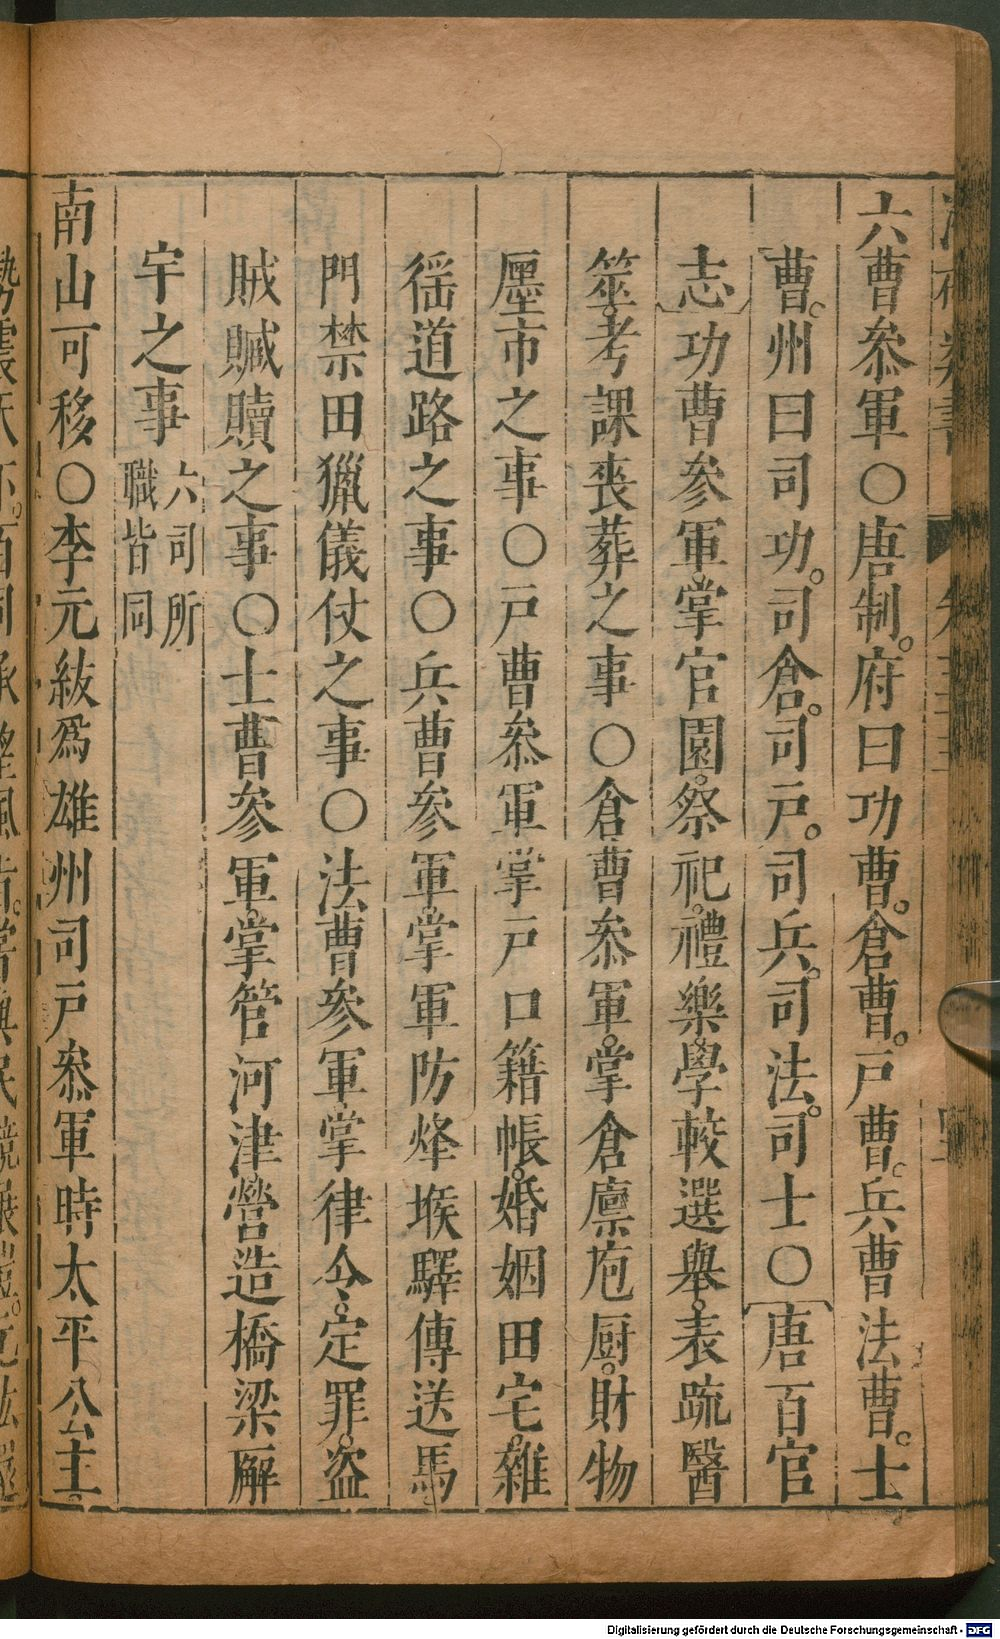 六曹叅軍○唐制。府曰功曹。倉曹。戸曹。兵曹法曹。士
曹。州曰司功。司倉。司戸。司兵。司法。司士○唐百官
志功曹參軍。掌官園。祭祀。禮樂。學較選舉。表疏醫
筮。考課喪葬之事○倉曹叅軍。掌倉廪庖厨。財物
㕓市之事○戸曹叅軍掌戸口籍帳。婚姻田宅。雜
徭道路之事○兵曹參軍。掌軍防烽堠驛傳送馬
門禁田獵儀仗之事○法曹參軍掌律令。定罪。盗
賊贓贖之事○士曹參軍。掌管河津營造橋梁廨
宇之事六司所職皆同
南山可移○李元紘爲雄州司戸叅軍時太平公主。
Digitalisierung gefördert durch die Deutsche Forschungsgemeinschaft - DFG